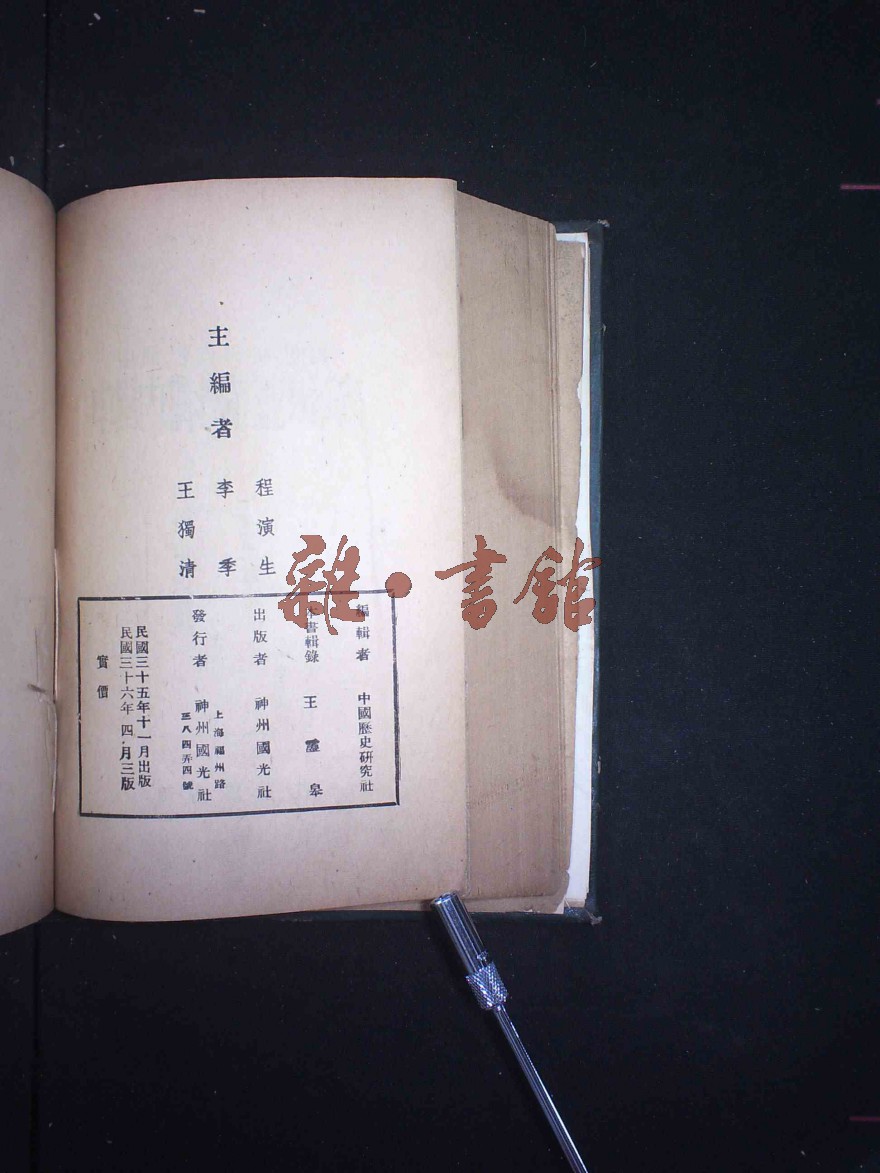 主編者
程演生
李季
王獨清
編輯者 中國歷史研究社
本書輯錄 王靈皋
出版者 神州國光社
發行者 神州國光社
上海福州路
三八四弄四號
民國三十五年十一月出版
民國三十六年四月三版
實價
雜·書館